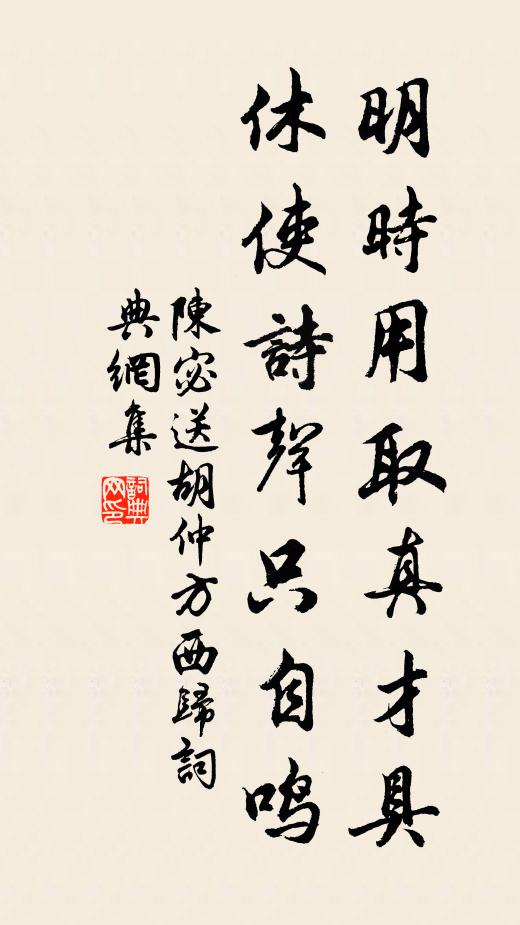 明時用取真才具
休使詩聲只自鳴
陳宓送胡仲方西歸詞
典網集
詞典
网印